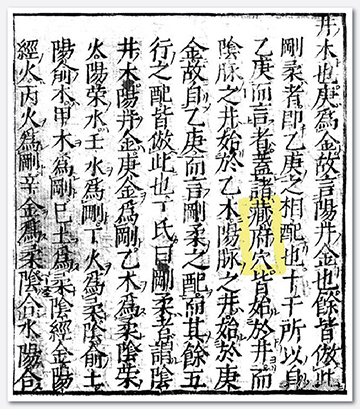 井木也庚爲金故言陽井金也餘皆倣此
剛柔者即乙庚之相配也十干所以自
乙庚而言者蓋諸藏府穴皆始於井而
陰脉之井始於乙木陽脉之井始於庚
金故自乙庚而言剛柔之配而其餘五
行之配皆倣此也丁氏曰剛柔者謂陰
井木陽井金庚金爲剛乙木爲柔陰榮
火陽榮水壬水爲剛丁火爲柔陰俞土
陽俞木甲木爲剛巳土爲柔陰經金陽
經火丙火爲剛辛金爲柔陰合水陽合